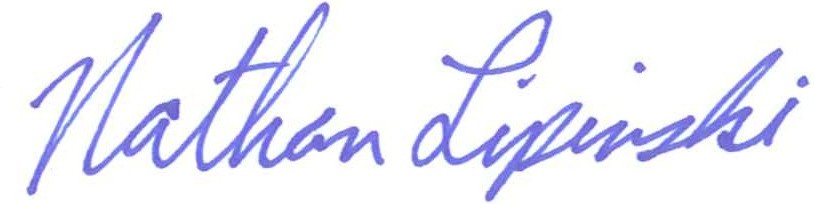 Nathan Lipinski